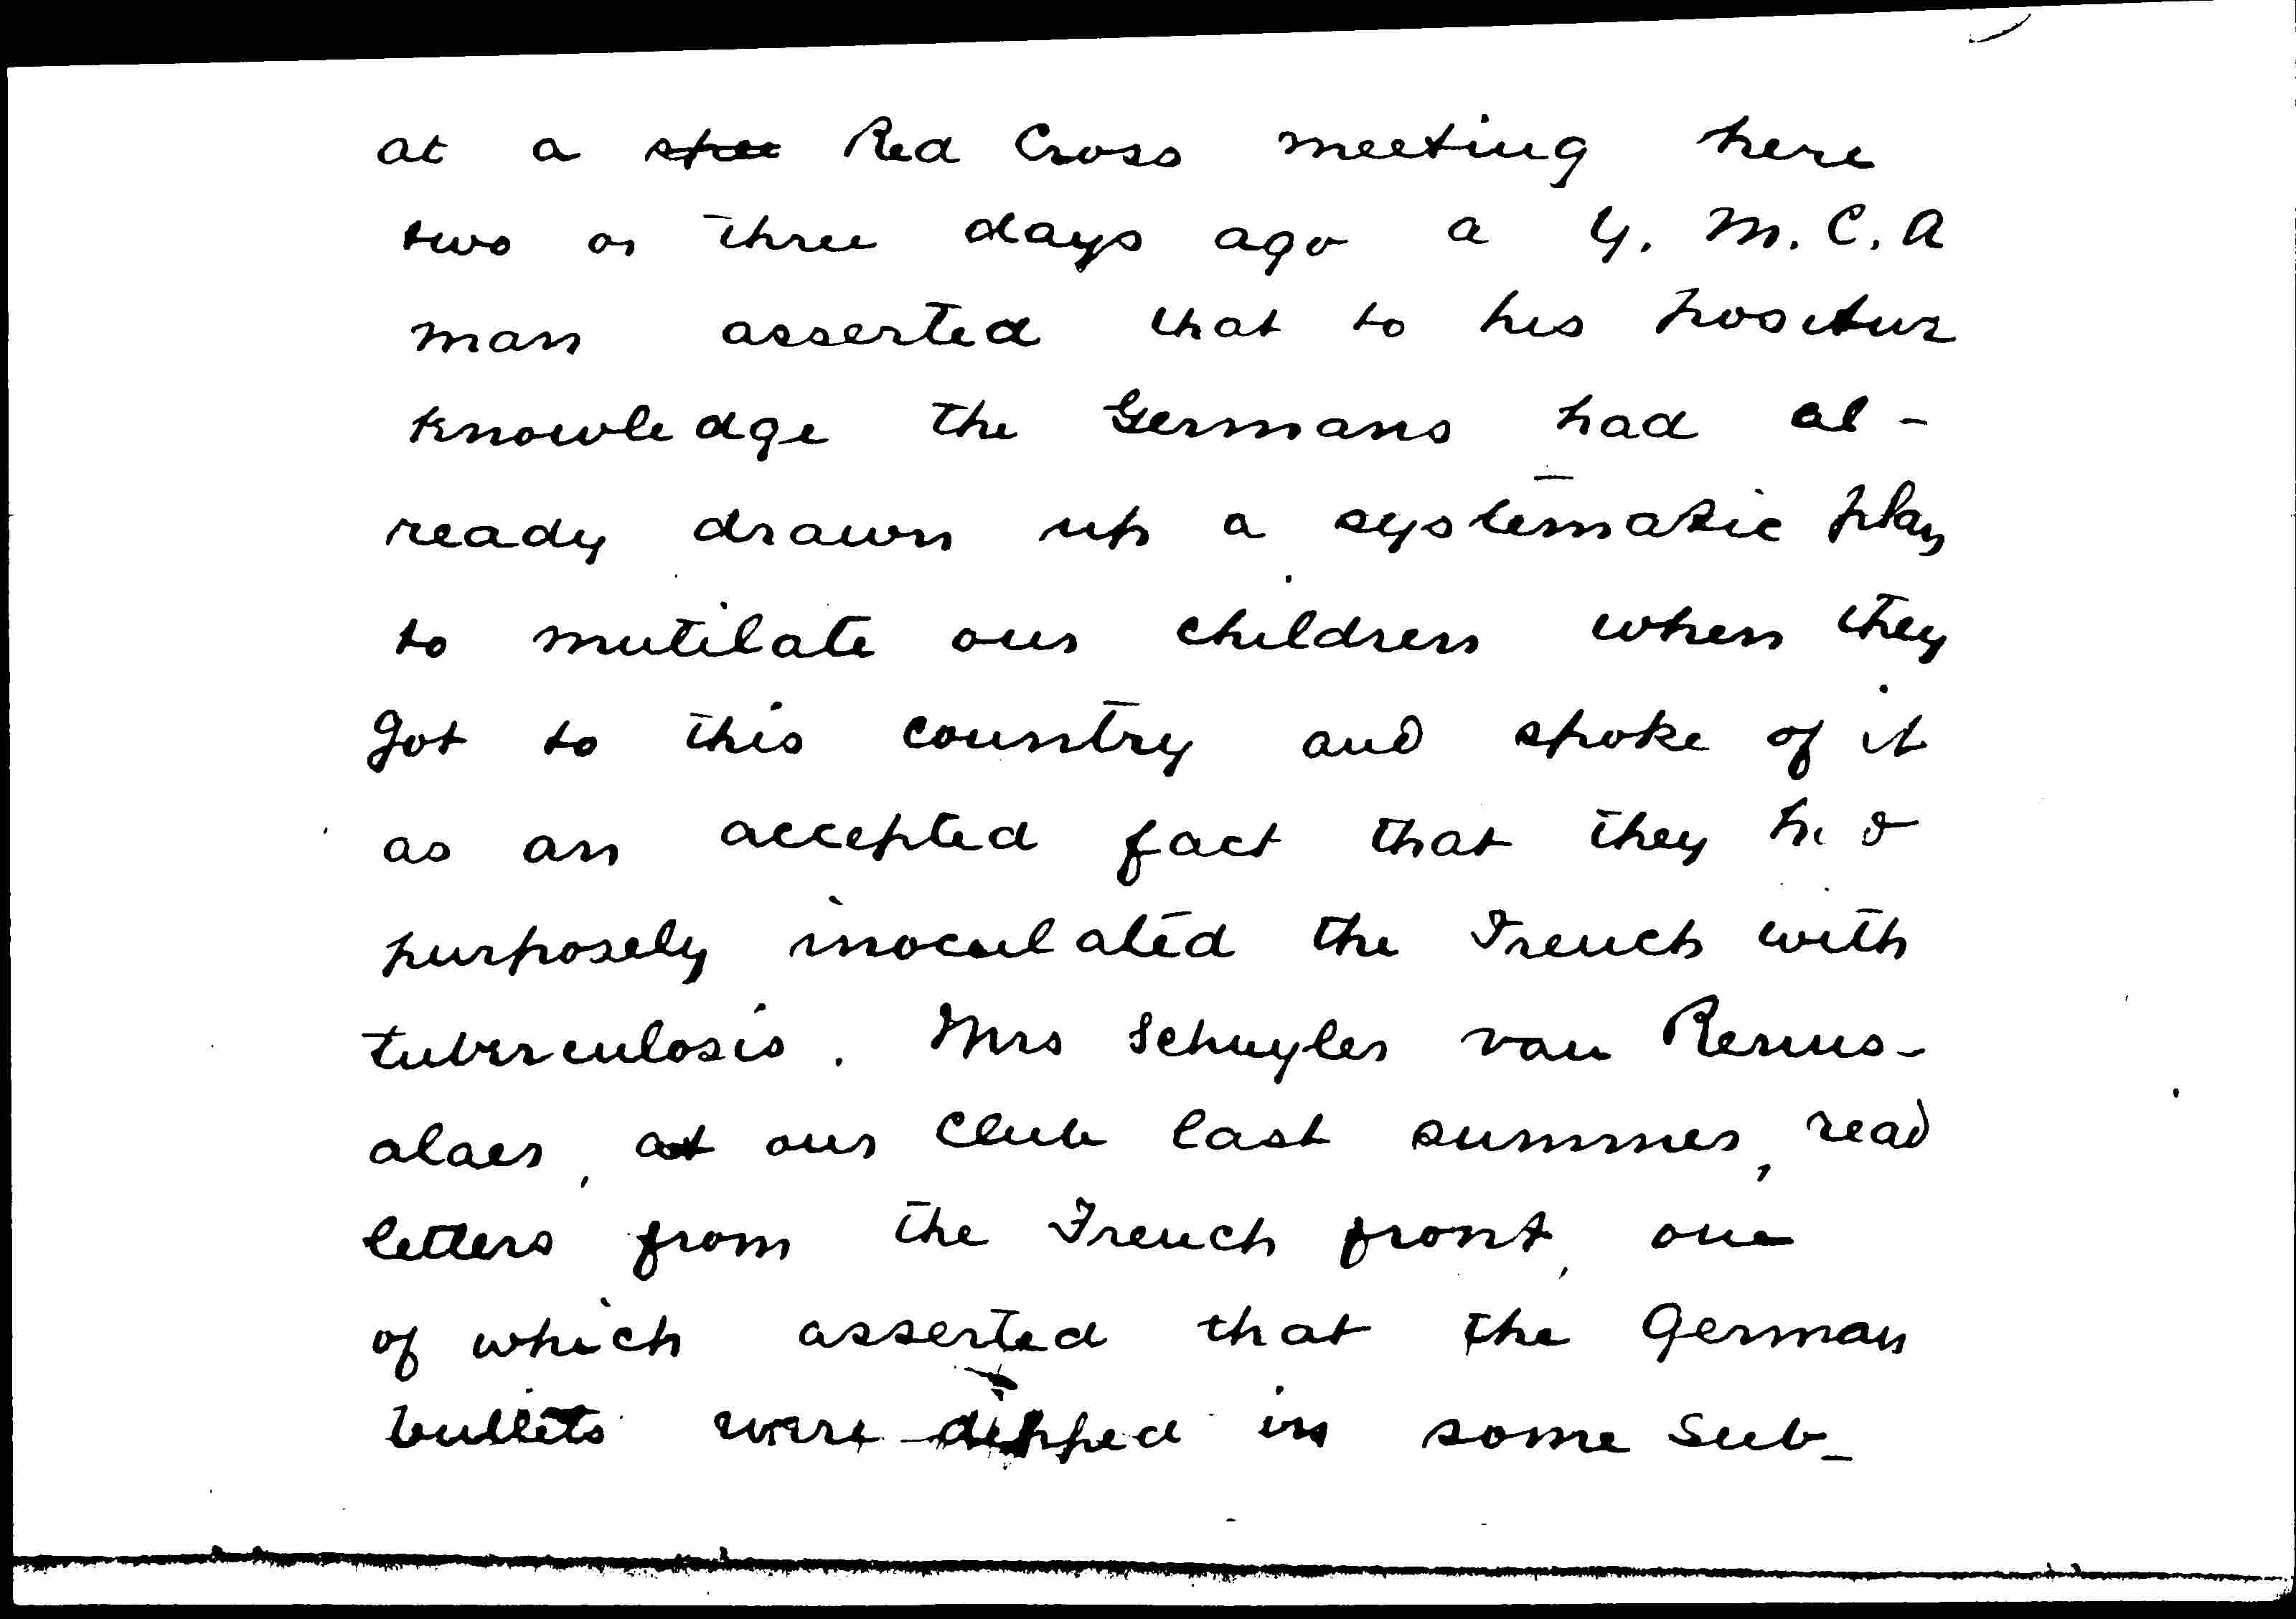 at a Red Cross meeting here
two or three days ago a Y. M. C. A
man asserted that to his positive
knowledge the Germans had al-
ready drawn up a systematic plan
to mutilate our children when they
got to this country and spoke of it
as an accepted fact that they had
purposely inoculated the French with
tuberculosis. Mrs Schuyler van Renns-
alaer, at our club last summer, read
letters from the French front, one
of which asserted that the German
bullets were dipped in some sub-